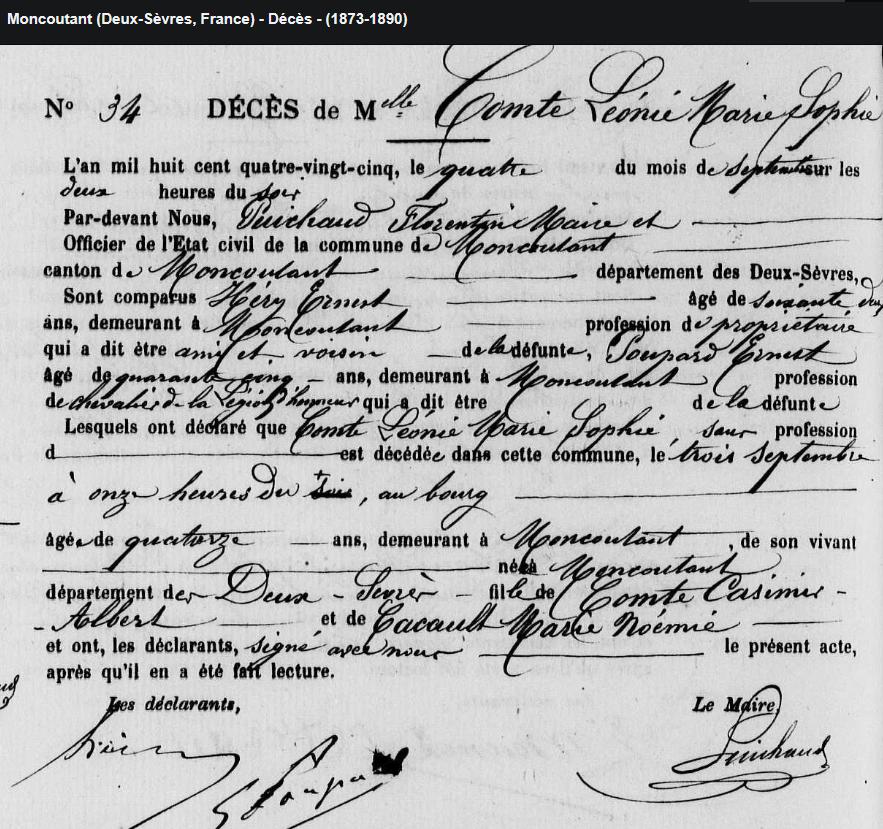 Moncoutant (Deux-Sèvres, France) - Décès - (1873-1890)
N° 34 DÉCÈS de Melle Comte Léonie Marie Sophie
L'an mil huit cent quatre-vingt-cinq, le quatre du mois de septembre sur les
deux heures du soir
Par-devant Nous, Puichaud Florentin Maire et
Officier de l'Etat civil de la commune de Moncoutant
canton de Moncoutant département des Deux-Sèvres,
Sont comparus Héry Ernest âgé de soixante deux
ans, demeurant à Moncoutant profession de propriétaire
qui a dit être ami et voisin de la défunte, Poupard Ernest
âgé de quarante cinq ans, demeurant à Moncoutant profession
de chevalier de la Légion d'honneur qui a dit être de la défunte
Lesquels ont déclaré que Comte Léonie Marie Sophie, sans profession
d est décédée dans cette commune, le trois septembre
à onze heures du soir, au bourg
âgée de quatorze ans, demeurant à Moncoutant, de son vivant
née à Moncoutant
département des Deux-Sèvres fille de Comte Casimir-
-Albert et de Cacault Marie Noémie
et ont, les déclarants, signé avec nous le présent acte,
après qu'il en a été fait lecture.
Les déclarants, Le Maire
Puichaud